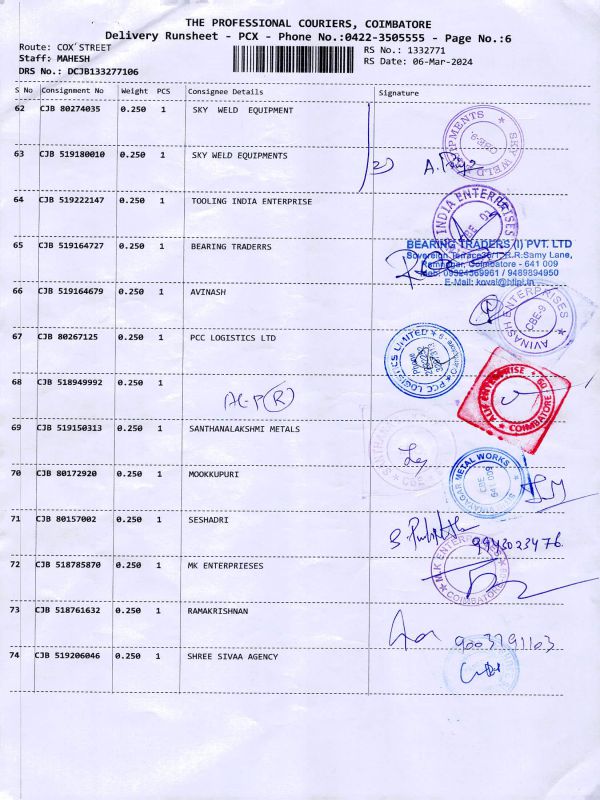 THE PROFESSIONAL COURIERS, COIMBATORE
Delivery Runsheet - PCX - Phone No.:0422-3505555 - Page No.:6
Route: COX'STREET
RS No.: 1332771
Staff: MAHESH
RS Date: 06-Mar-2024
DRS No.: DCJB133277106
S No Consignment No Weight PCS Consignee Details Signature
62 CJB 80274035 0.250 1 SKY WELD EQUIPMENT
63 CJB 519180010 0.150 1 SKY WELD EQUIPMENTS
SKY WELD EQUIPMENTS
CBE-9
64 CJB 519222147 0.250 1 TOOLING INDIA ENTERPRISE
INDIA ENTERPRISES
65 CJB 519164727 0.250 1 BEARING TRADERRS
BEARING TRADERS (I) PVT. LTD
Sovereign Terrace
R.R.Samy Lane,
Ramnagar, Coimbatore - 641 009
/ 9489894950
E-Mail:
66 CJB 519164679 0.250 1 AVINASH
AVINASH ENTERPRISES
CBE-9
67 CJB 80267125 0.250 1 PCC LOGISTICS LTD
PCC LOGISTICS LIMITED
68 CJB 518949992 0.250 1
ENTERPRISE
COIMBATORE
69 CJB 519150313 0.250 1 SANTHANALAKSHMI METALS
70 CJB 80172920 0.250 1 MOOKKUPURI
METAL WORKS
CBE
641 009
71 CJB 80157002 0.250 1 SESHADRI
9943023476.
72 CJB 518785870 0.250 1 MK ENTERPRIESES
M.K ENTERPRISES
COIMBATORE
73 CJB 518761632 0.250 1 RAMAKRISHNAN
9003791103
74 CJB 519206046 0.250 1 SHREE SIVAA AGENCY